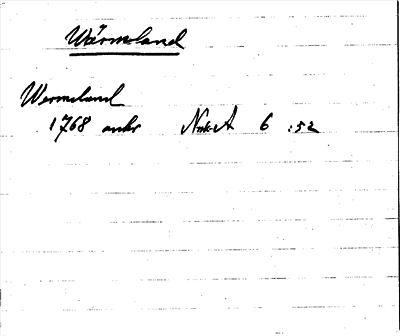 Wärmeland
Wermeland
1768 ankr NatA 6 :52